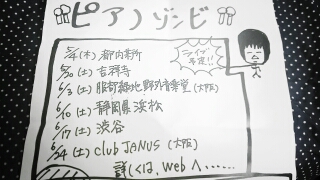 ピアノゾンビ
ライブ予定!!
5/4(木) 都内某所
5/20(土) 吉祥寺
6/3(土) 服部緑地野外音楽堂(大阪)
6/10(土) 静岡県浜松
6/17(土) 渋谷
6/24(土) club JANUS (大阪)
詳しくは、webへ……